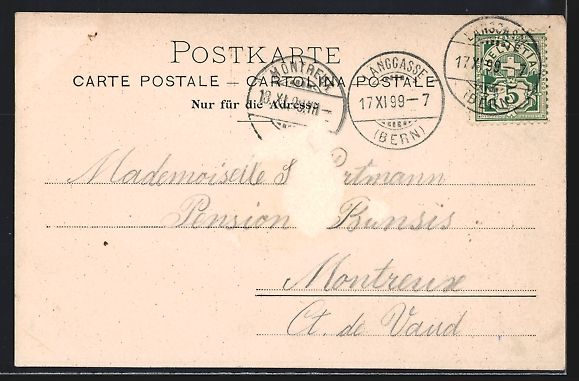 POSTKARTE
CARTE POSTALE — CARTOLINA POSTALE
Nur für die Adresse
MONTREUX
18.XI.99
LÄNGGASSE
17 XI 99 - 7
(BERN)
LÄNGGASSE
17 XI 99
(BERN)
HELVETIA
5
Mademoiselle
Pension Bunsis
Montreux
Ct. de Vaud